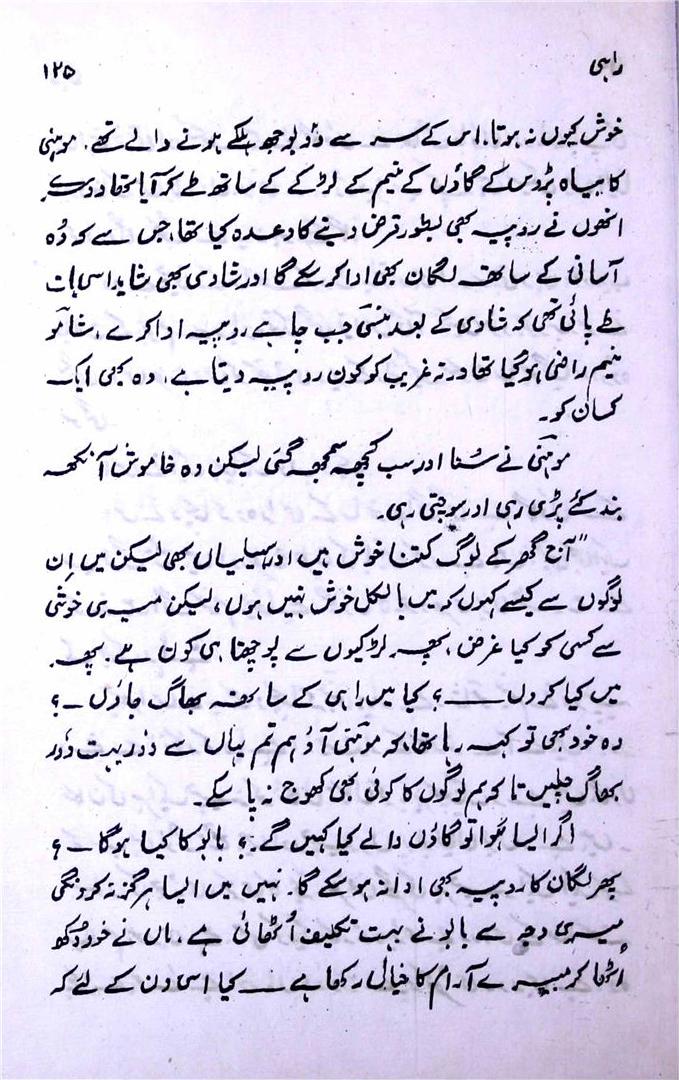 راہی ۱۲۵
خوش کیوں نہ ہوتا۔ اس کے سر سے دو بوجھ ہلکے ہونے والے تھے۔ موہنی
کا بیاہ پڑوس کے گاؤں کے منیم کے لڑکے کے ساتھ طے کر آیا تھا دوسرے
انھوں نے روپیہ بھی بطور قرض دینے کا وعدہ کیا تھا، جس سے کہ وُہ
آسانی کے ساتھ لگان بھی ادا کر سکے گا اور شادی بھی شاید اسی بات
طے پائی تھی کہ شادی کے بعد بنسی جب چاہے روپیہ ادا کرے، شامو
منیم راضی ہو گیا تھا ورنہ غریب کو کون روپیہ دیتا ہے، وہ بھی ایک
کسان کو۔
موہنی نے سُنا اور سب کچھ سمجھ گئی لیکن وہ خاموش آنکھ
بند کئے پڑی رہی اور سوچتی رہی۔
"آج گھر کے لوگ کتنا خوش ہیں اور سہیلیاں بھی لیکن میں اِن
لوگوں سے کیسے کہوں کہ میں بالکل خوش نہیں ہوں، لیکن میری خوشی
سے کسی کو کیا غرض، پھر لڑکیوں سے پوچھتا ہی کون ہے۔ پھر
میں کیا کروں ــــ؟ کیا میں راہی کے ساتھ بھاگ جاؤں ـ؟
وہ خود بھی تو کہہ رہا تھا، کہ موہنی آؤ ہم تم یہاں سے دور بہت دُور
بھاگ چلیں تاکہ ہم لوگوں کا کوئی بھی کھوج نہ پا سکے۔
اگر ایسا ہُوا تو گاؤں والے کیا کہیں گے۔؟ بابو کا کیا ہوگا ـ؟
پھر لگان کا روپیہ بھی ادا نہ ہو سکے گا۔ نہیں میں ایسا ہرگز نہ کرونگی
میری وجہ سے بابو نے بہت تکلیف اُٹھائی ہے، ماں نے خود دُکھ
اُٹھا کر میرے آرام کا خیال رکھا ہے ــــ کیا اسی دن کے لئے کہ